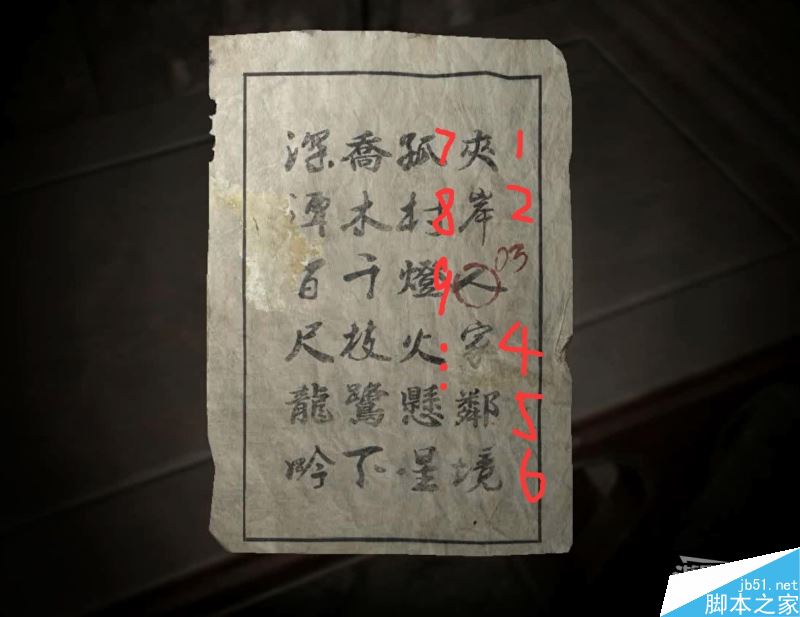 夾岸人家鄰境
孤村燈火懸星
喬木千枝鷺下
深潭百尺龍吟
03
1
2
4
5
6
7
8
9
jb51.net
脚本之家